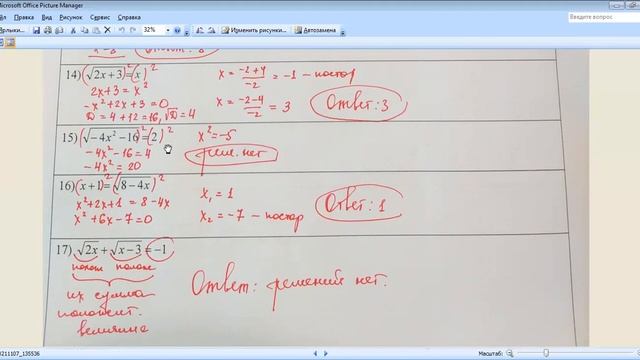 Microsoft Office Picture Manager
Правка Вид Рисунок Сервис Справка
Введите вопрос
32% Изменить рисунки... Автозамена
x=3 Ответ: 8
14) (√2x+3)² = (x)²
2x+3 = x²
-x²+2x+3=0
D = 4+12=16, √D=4
x = -2+4/-2 = -1 - постор
x = -2-4/-2 = 3
Ответ: 3
15) (√-4x²-16)² = (2)²
-4x²-16=4
-4x²=20
x²=-5
реш. нет
16) (x+1)² = (√8-4x)²
x²+2x+1 = 8-4x
x²+6x-7=0
x₁ = 1
x₂ = -7 - постор
Ответ: 1
17) √2x + √x-3 = -1
полож полож
их сумма
положит.
величина
Ответ: решений нет.
3211107_135536
Масштаб: